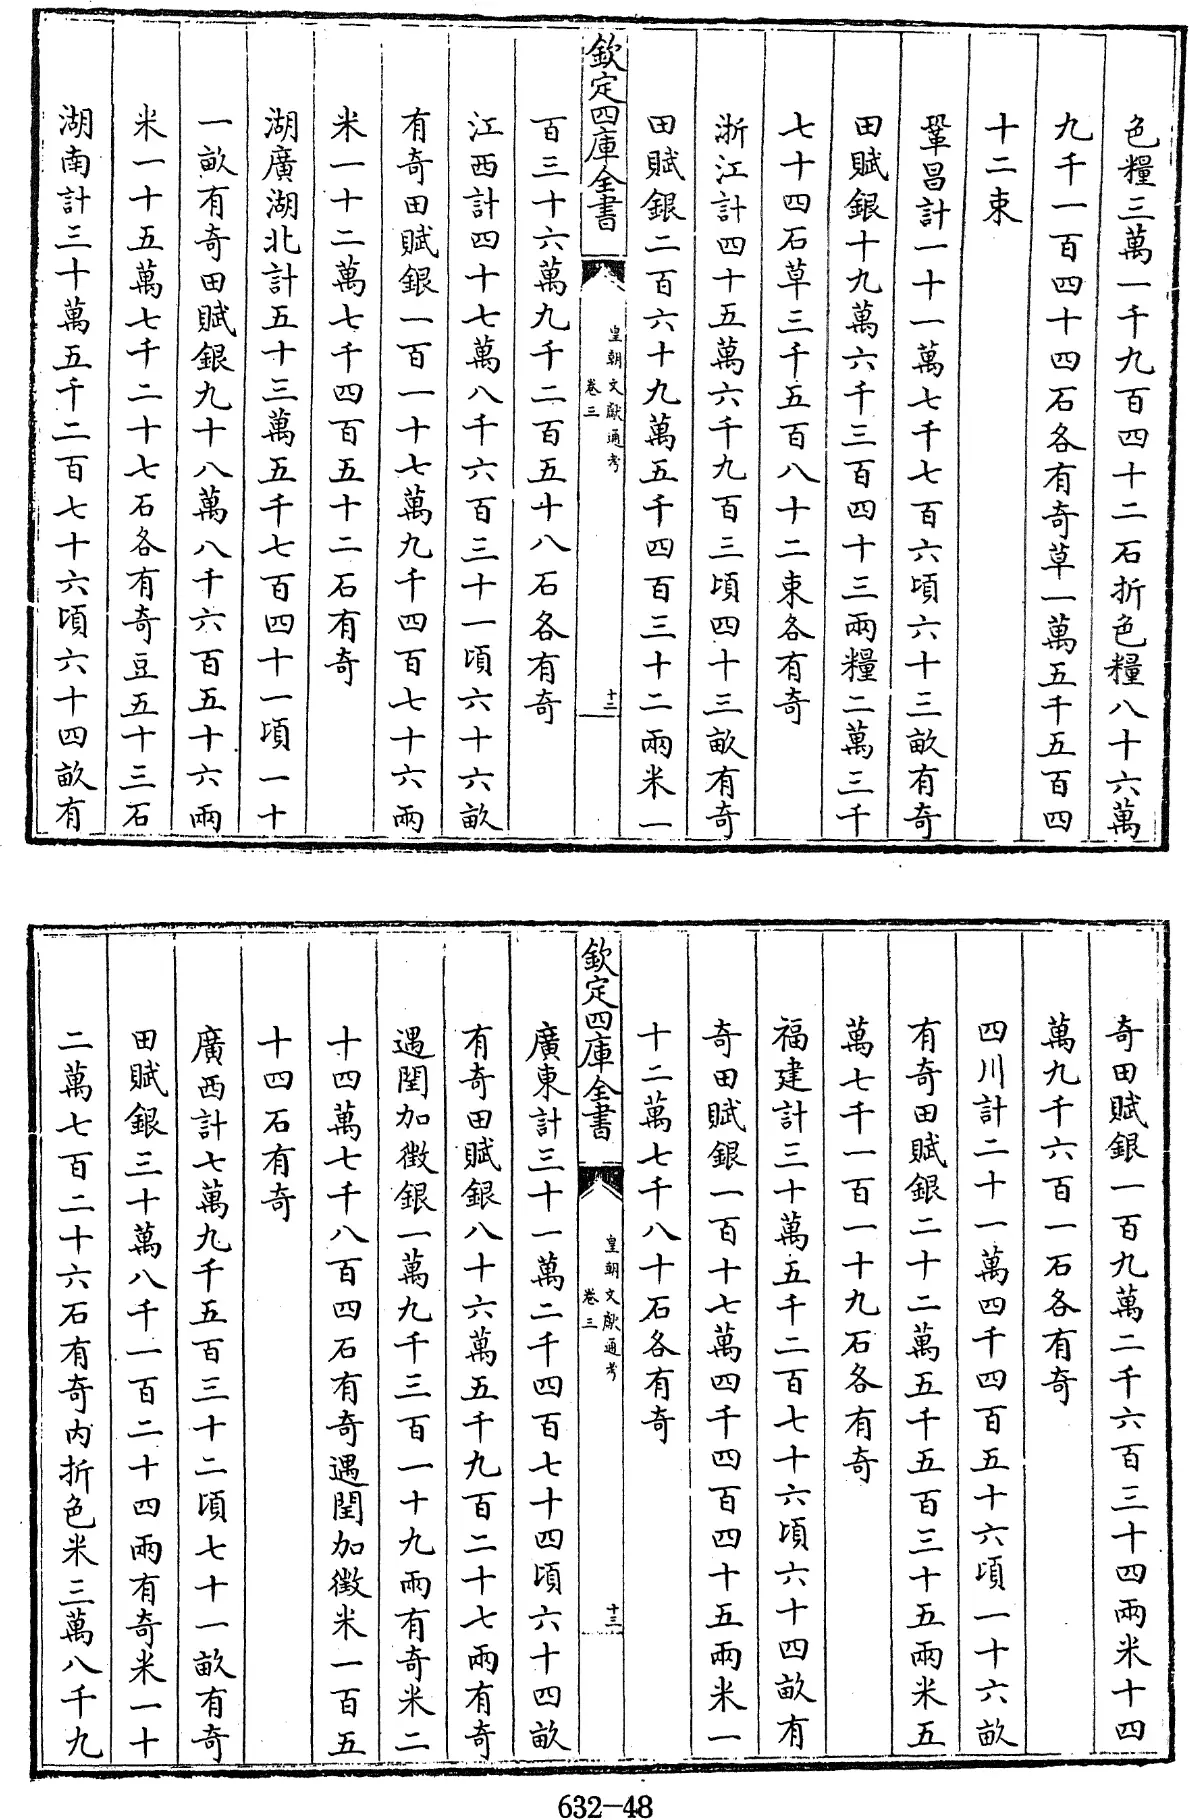 色糧三萬一千九百四十二石折色糧八十六萬
九千一百四十四石各有奇草一萬五千五百四
十二束
鞏昌計一十一萬七千七百六頃六十三畝有奇
田賦銀十九萬六千三百四十三兩糧二萬三千
七十四石草三千五百八十二束各有奇
浙江計四十五萬六千九百三頃四十三畝有奇
田賦銀二百六十九萬五千四百三十二兩米一
欽定四庫全書
皇朝文獻通考
卷三
十二
百三十六萬九千二百五十八石各有奇
江西計四十七萬八千六百三十一頃六十六畝
有奇田賦銀一百一十七萬九千四百七十六兩
米一十二萬七千四百五十二石有奇
湖廣湖北計五十三萬五千七百四十一頃一十
一畝有奇田賦銀九十八萬八千六百五十六兩
米一十五萬七千二十七石各有奇豆五十三石
湖南計三十萬五千二百七十六頃六十四畝有
奇田賦銀一百九萬二千六百三十四兩米十四
萬九千六百一石各有奇
四川計二十一萬四千四百五十六頃一十六畝
有奇田賦銀二十二萬五千五百三十五兩米五
萬七千一百一十九石各有奇
福建計三十萬五千二百七十六頃六十四畝有
奇田賦銀一百十七萬四千四百四十五兩米一
十二萬七千八十石各有奇
欽定四庫全書
皇朝文獻通考
卷三
十三
廣東計三十一萬二千四百七十四頃六十四畝
有奇田賦銀八十六萬五千九百二十七兩有奇
遇閏加徵銀一萬九千三百一十九兩有奇米二
十四萬七千八百四石有奇遇閏加徵米一百五
十四石有奇
廣西計七萬九千五百三十二頃七十一畝有奇
田賦銀三十萬八千一百二十四兩有奇米一十
二萬七百二十六石有奇內折色米三萬八千九
632-48